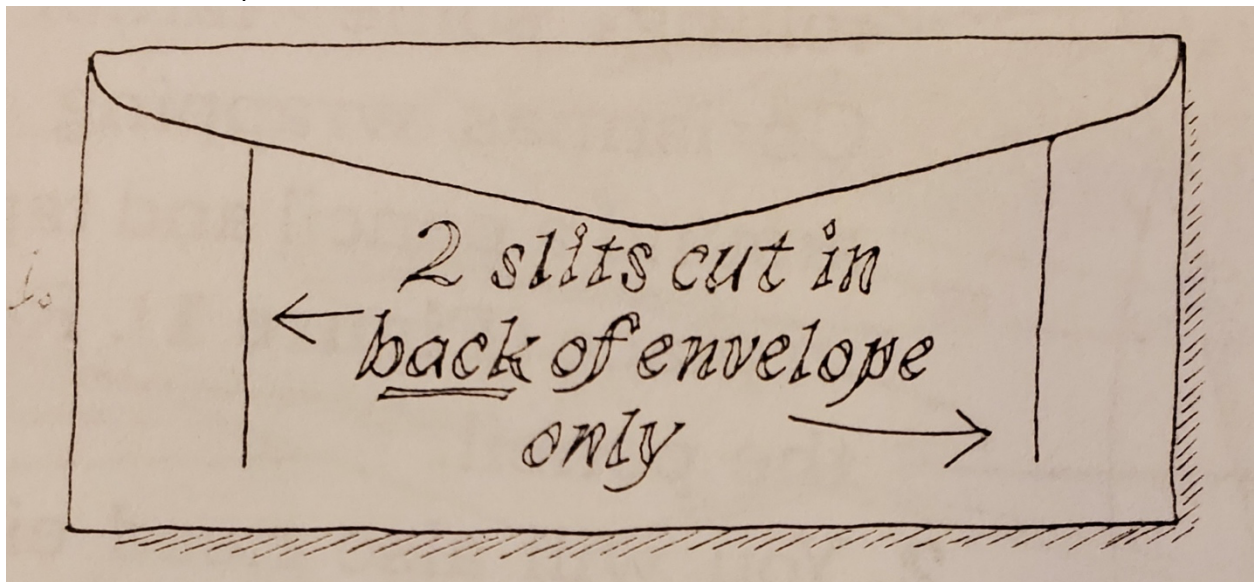 2 slits cut in
back of envelope
only